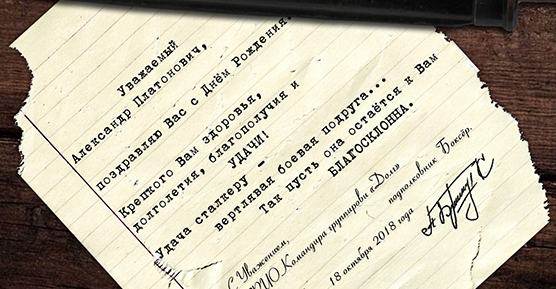 Уважаемый
Александр Платонович,
поздравляю Вас с Днём Рождения.
Крепкого Вам здоровья,
долголетия, благополучия и
УДАЧИ!
Удача сталкеру -
вертлявая боевая подруга...
Так пусть она остаётся к Вам
БЛАГОСКЛОННА.
С Уважением,
Командира группировки «Долг»
подполковник Боксёр.
18 октября 2018 года